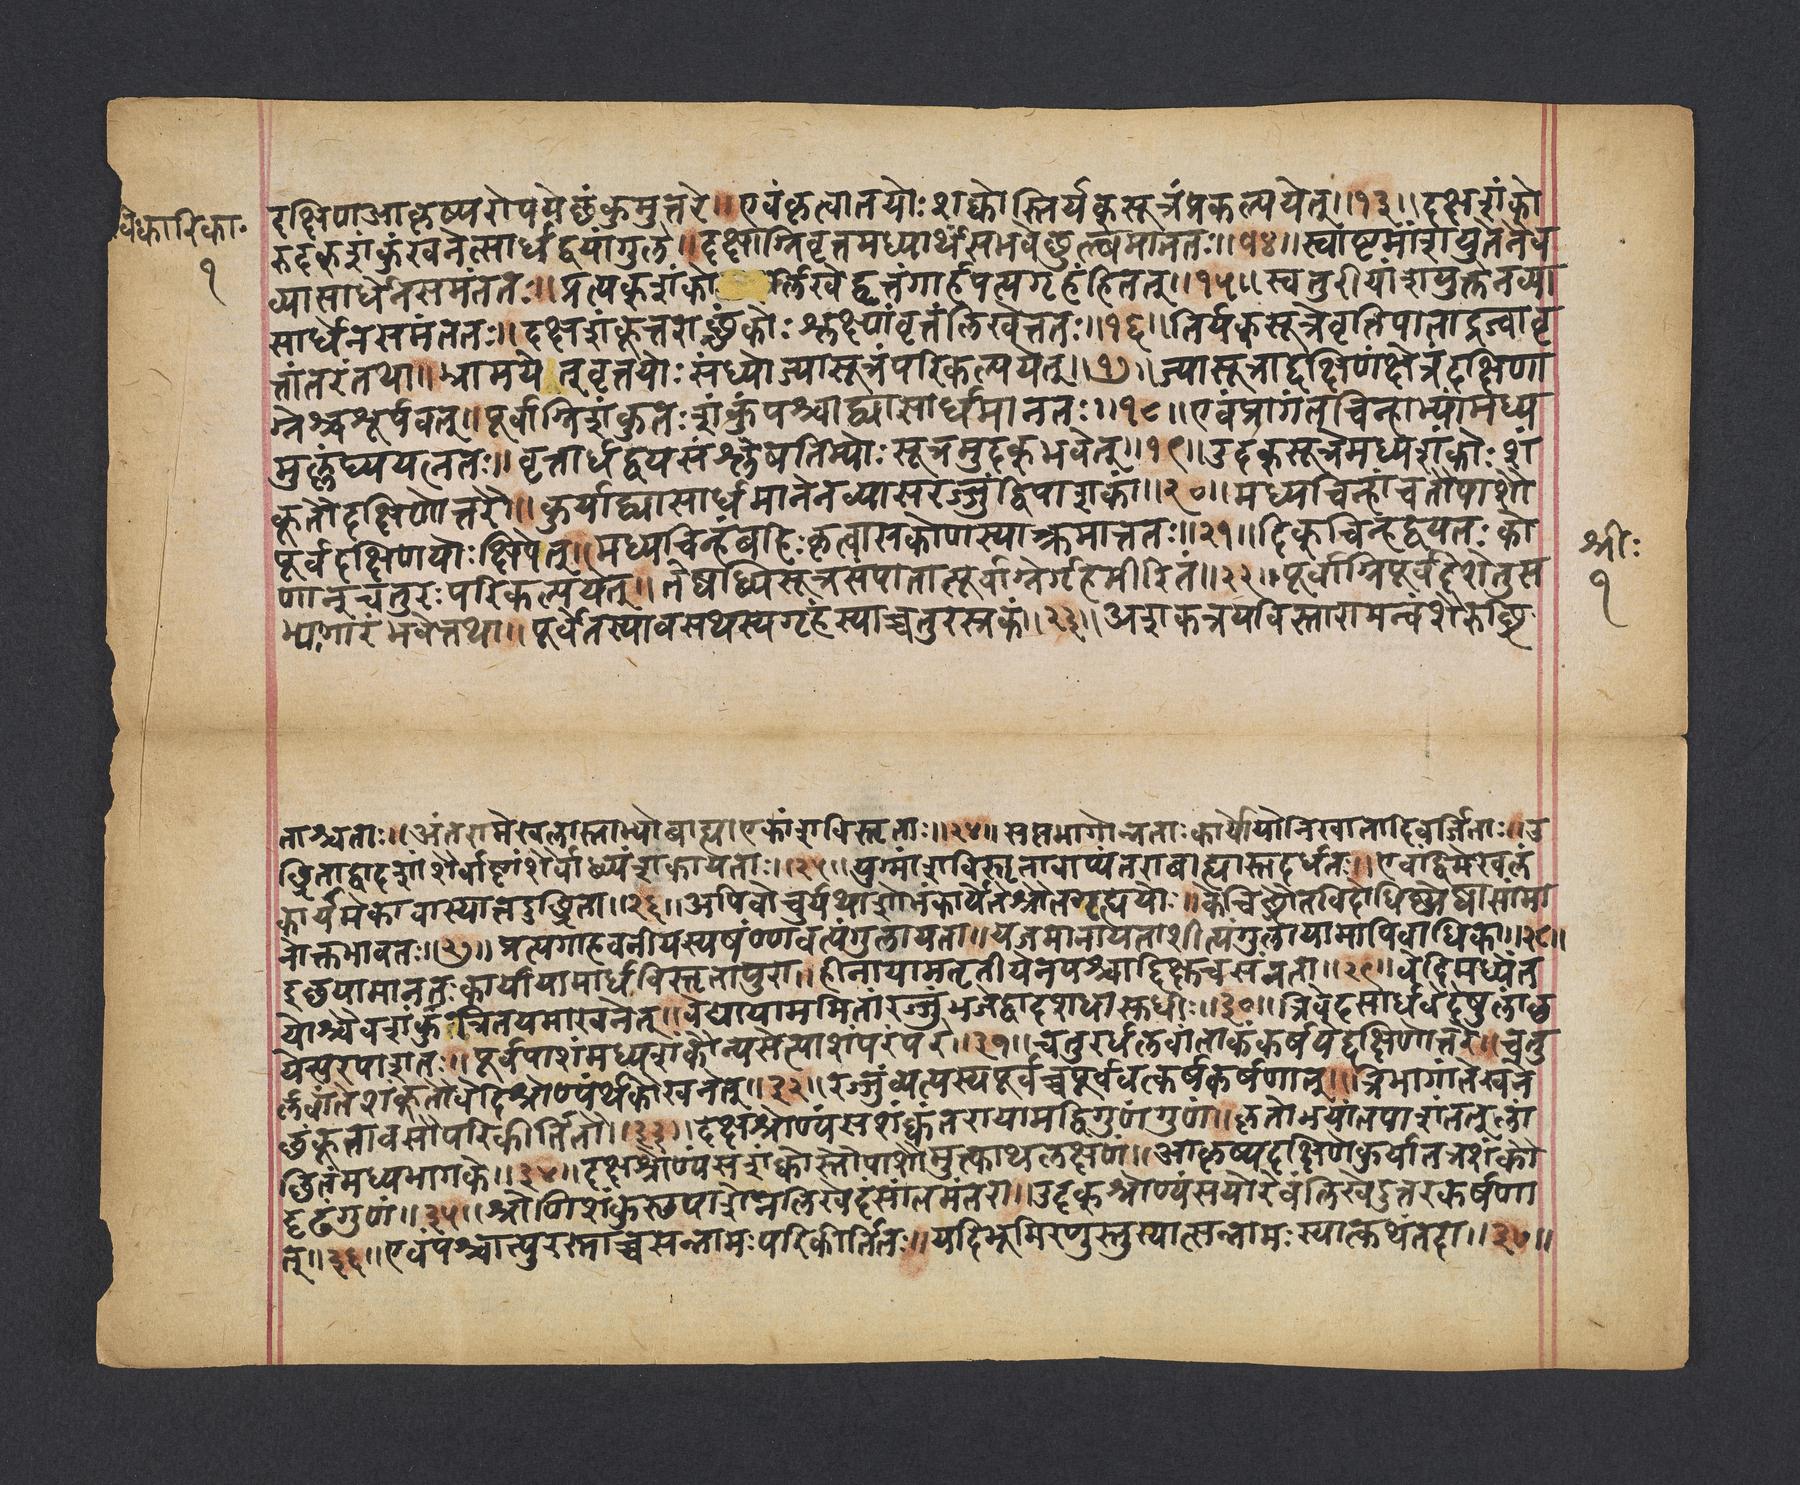 वेकारिका॰
१
दक्षिणाआकृष्यरोपयेछंकुमुत्तरे॥ एवंकृत्वातयोः शंक्वोस्तिर्यक्सूत्रंप्रकल्पयेत्॥१३॥ दक्षशंको
रुदक्शंकुंखनेत्सार्धद्वयांगुले॥ दक्षाग्निवृत्तमध्यार्थंसभवेछुल्वमानतः॥१४॥ स्वाष्टमांशयुतेनैव
व्यासार्धेनसमंततः॥ प्रत्यक्शंको र्लिखेद्वृत्तंगार्हपत्यगृहंहितत्॥१५॥ स्वतुरीयांशयुक्तेनव्या
सार्धेनसमंततः॥ दक्षशंकूत्तरोछंकोः श्लक्ष्णंवृत्तंलिखेत्ततः॥१६॥ तिर्यक्सूत्रेवृतिपाताद्गत्वावृ
त्तांतरंतथा॥ भ्रामये त्तुवृत्तयोः संध्योज्यासूत्रंपरिकल्पयेत्॥१७॥ ज्यासूत्राद्दक्षिणंक्षेत्रंदक्षिणा
ग्नेश्चश्रूर्पवत्॥ पूर्वाग्निशंकुतः शंकुंपश्चाद्व्यासार्धमानतः॥१८॥ एवंप्रागंतचिन्हाभ्यांमध्य
मुल्लंघ्ययत्नतः॥ वृत्तार्धद्वयसंश्लेषतिम्योः सूत्रमुदक्भवेत्॥१९॥ उदक्सूत्रेमध्यशंकोः शं
कूतौदक्षिणोत्तरौ॥ कुर्याद्व्यासार्धमानेनव्यासरज्जुंद्विपाशकां॥२०॥ मध्यचिन्हांचतौपाशौ
पूर्वदक्षिणयोः क्षिपेत्॥ मध्यचिन्हंबहिः कृत्वासकोणस्यात्क्रमात्ततः॥२१॥ दिक्चिन्हद्वयतः को
णान्चतुरः परिकल्पयेत्॥ तेष्वष्विसूत्रसंपातात्पूर्वाग्नेर्गृहमीरितं॥२२॥ पूर्वाग्निपूर्वदेशेतुस
भ्यागारंभवेत्तथा॥ पूर्वेतस्यावसथस्यगृहंस्याच्चतुरस्रकं॥२३॥ अशकत्रयविस्तारामन्वंशैरुछ्रि
श्रीः
१
ताश्चताः॥ अंतरामेखलास्ताभ्योबाह्याएकांशविस्तृताः॥२४॥ सप्तभागोन्नताः कार्यायोनिखातादिवर्जिताः॥ उ
छ्रिताद्वादशांशैर्वाष्टांशैर्वाध्यंशकायताः॥२५॥ युग्मांशविस्तृतावाप्यंतराबाह्यास्तदर्धतः॥ एवंद्विमेखलं
कार्यमेकावास्यात्तदुछ्रिता॥२६॥ अपिवोचुर्यथाशोभंकार्येतेश्रौतगृह्ययोः॥ केचिछ्रौतविदोधिष्ण्येषासीमां
नोक्तभावतः॥२७॥ प्रत्यगाहवनीयस्यषंण्णवत्यंगुलायता॥ यजमानायताशीत्यंगुलायामापिवाधिका॥२८॥
दछयामानतः कार्यायामार्धविस्तृतापुरा॥ हीनायामतृतीयेनपश्चाद्दिक्षुचसंनता॥२९॥ वेदिमध्येत
योश्चैवशंकुंत्रितयमाखनेत्॥ वेद्यायाममितांरज्जुंभजेद्वादशधास्तधीः॥३०॥ त्रिवेदसार्धवेदेषुलांछ
येत्पुरपाशतः॥ पूर्वपाशंमध्यशंकौन्यसेत्पाशंपरंपरे॥३१॥ चतुरर्धलवांतांकंकर्षयेद्दक्षिणोत्तरे॥ चतु
र्लवांतेशंकूतौवेदिश्रोण्यर्थकौखनेत्॥३२॥ रज्जुंव्यत्यस्यपूर्वंचपूर्ववत्कर्षकर्षणात्॥ त्रिभागांतेखने
छंकूतावंसौपरिकीर्तितौ॥३३॥ दक्षश्रोण्यंसशंक्वंतरायामद्विगुणंगुणं॥ कृत्वोभयांतपाशंतत्लां
छितंमध्यभागके॥३४॥ दक्षश्रोण्यंसशंक्वोस्तौपाशौमुत्काथलक्षणं॥ आकृष्यदक्षिणेकुर्यात्तत्रशंकौ
दृढंगुणं॥३५॥ श्रोणिशंकुस्थपाशेनलिखेदंसांतमंतरा॥ उदक्श्रोण्यंसयोरेवंलिखेदुत्तरकर्षणा
त्॥३६॥ एवंपश्चात्पुरस्ताच्चसन्नामः परिकीर्तितः॥ यदिभूमिरणुस्तुस्यात्सन्नामः स्यात्कथंतदा॥३७॥